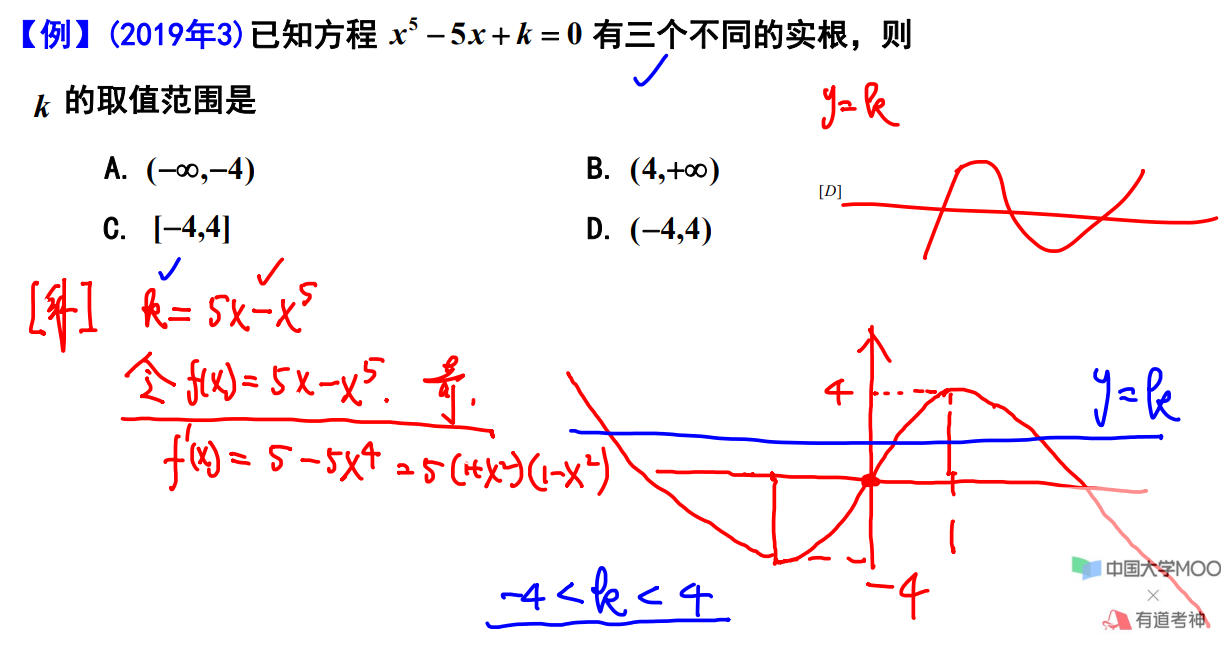 【例】(2019年3)已知方程 x⁵ − 5x + k = 0 有三个不同的实根，则
k 的取值范围是
y=k
A. (−∞,−4)
B. (4,+∞)
[D]
C. [−4,4]
D. (−4,4)
[解] k = 5x − x⁵
令 f(x) = 5x − x⁵. 奇.
f'(x) = 5 − 5x⁴ = 5(1+x²)(1−x²)
4
y=k
1
−4
−4 < k < 4
中国大学MOO
×
有道考神